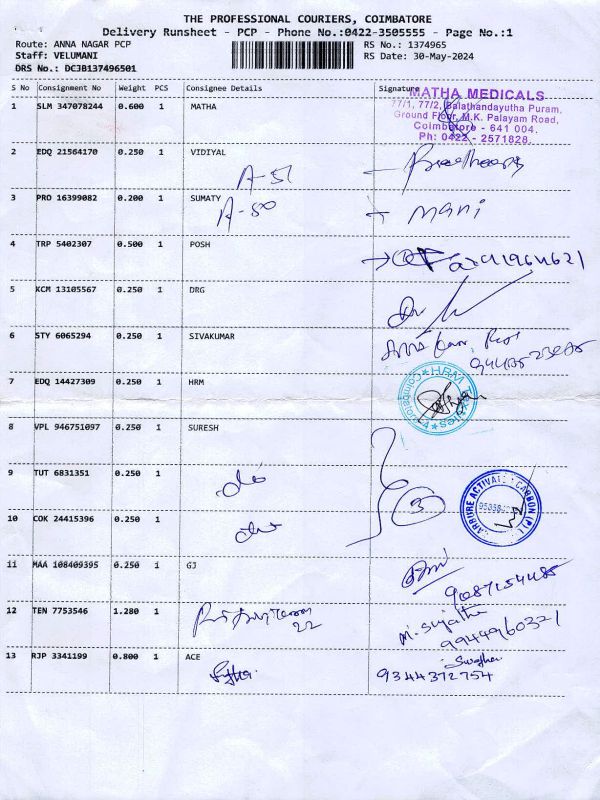 THE PROFESSIONAL COURIERS, COIMBATORE
Delivery Runsheet - PCP - Phone No.:0422-3505555 - Page No.:1
Route: ANNA NAGAR PCP
RS No.: 1374965
Staff: VELUMANI
RS Date: 30-May-2024
DRS No.: DCJB137496501
S No Consignment No Weight PCS Consignee Details Signature
1 SLM 347078244 0.600 1 MATHA
MATHA MEDICALS
77/1, 77/2, Balathandayutha Puram,
Ground Floor, M.K. Palayam Road,
Coimbatore - 641 004.
Ph: 0422 - 2571828.
2 EDQ 21564170 0.250 1 VIDIYAL
A-51
3 PRO 16399082 0.200 1 SUMATY
A-50 mani
4 TRP 5402307 0.500 1 POSH
5 KCM 13105567 0.250 1 DRG
6 STY 6065294 0.250 1 SIVAKUMAR
7 EDQ 14427309 0.250 1 HRM
8 VPL 946751097 0.250 1 SURESH
9 TUT 6831351 0.250 1
3
10 COK 24415396 0.250 1
11 MAA 108409395 0.250 1 GJ
9087154485
12 TEN 7753546 1.280 1
22
M. Sujatha
9944960321
13 RJP 3341199 0.800 1 ACE
9344372754